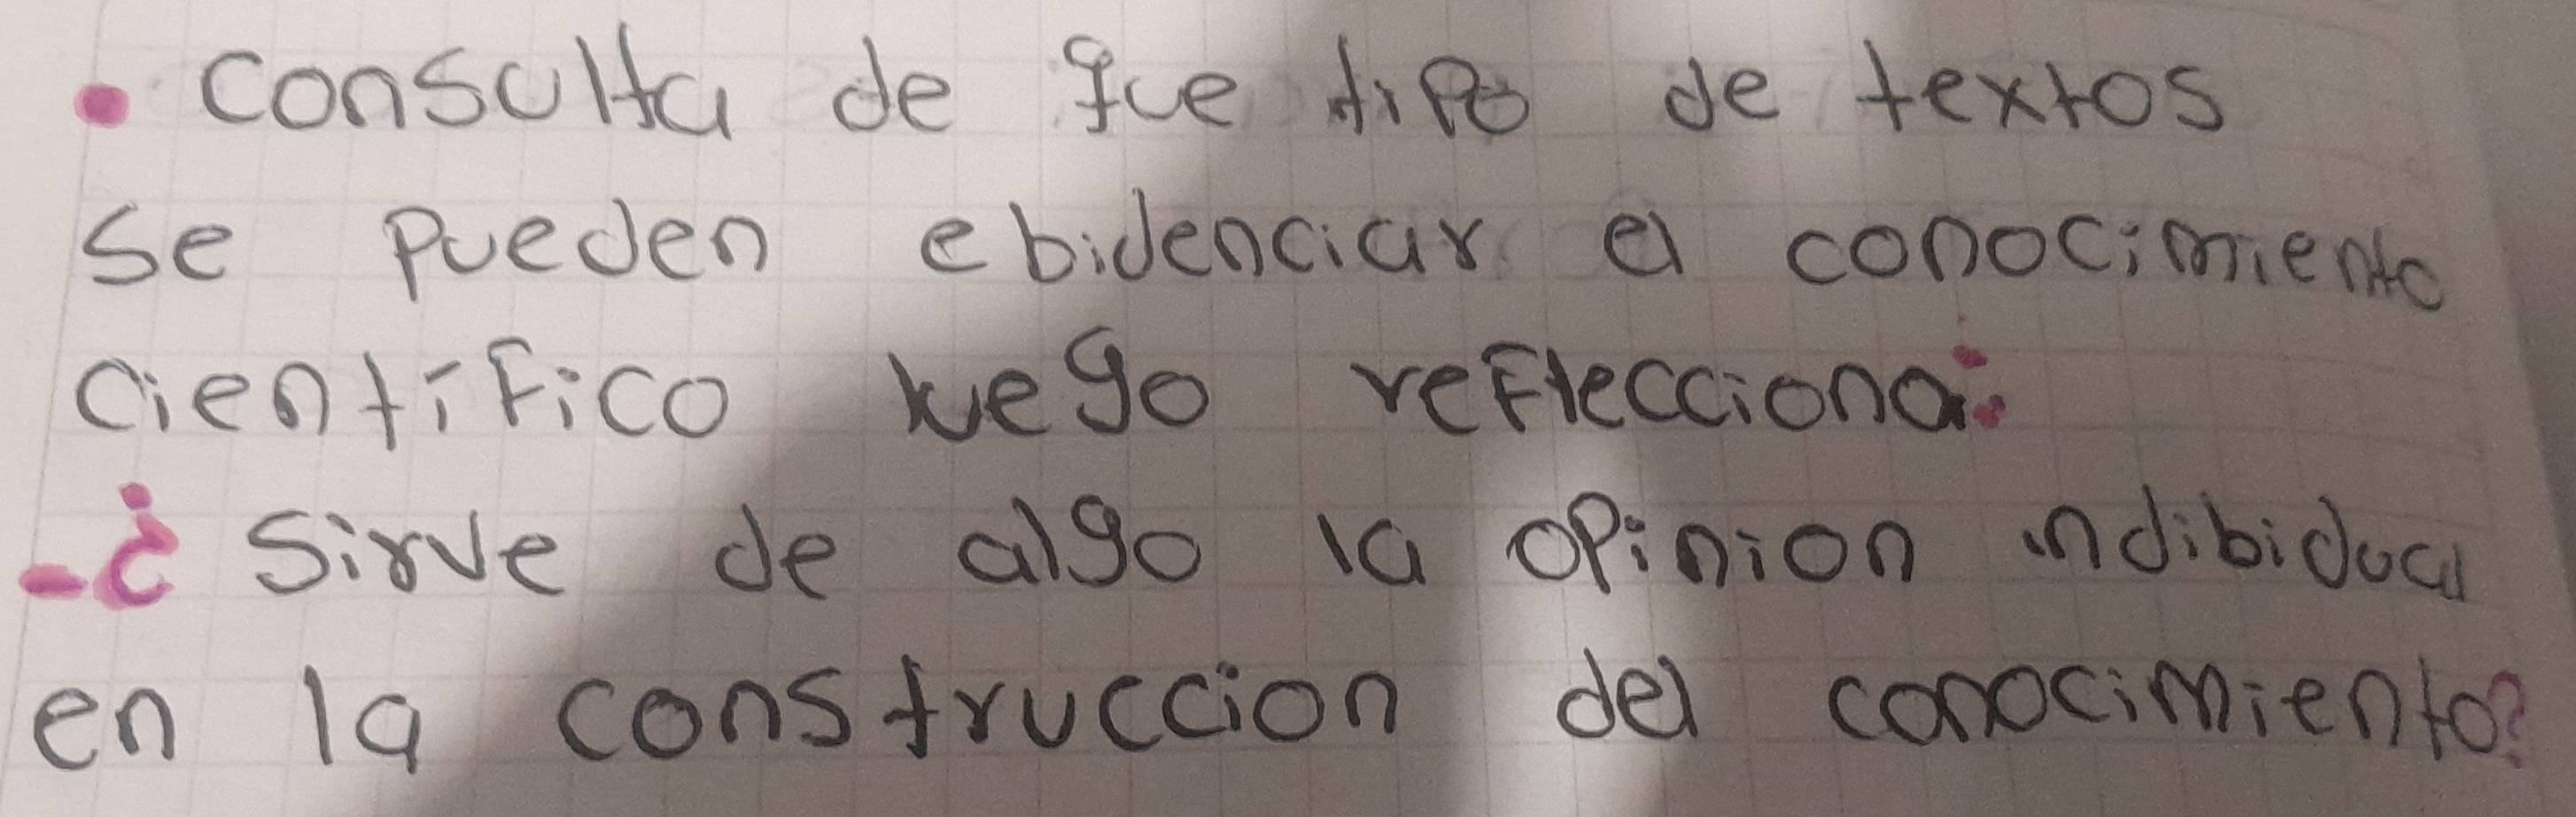 • Consulta de que tipo de textos
se pueden ebidenciar el conocimiento
científico luego reflecciona:
-¿ Sirve de algo la opinion indibidual
en la construccion del conocimiento?